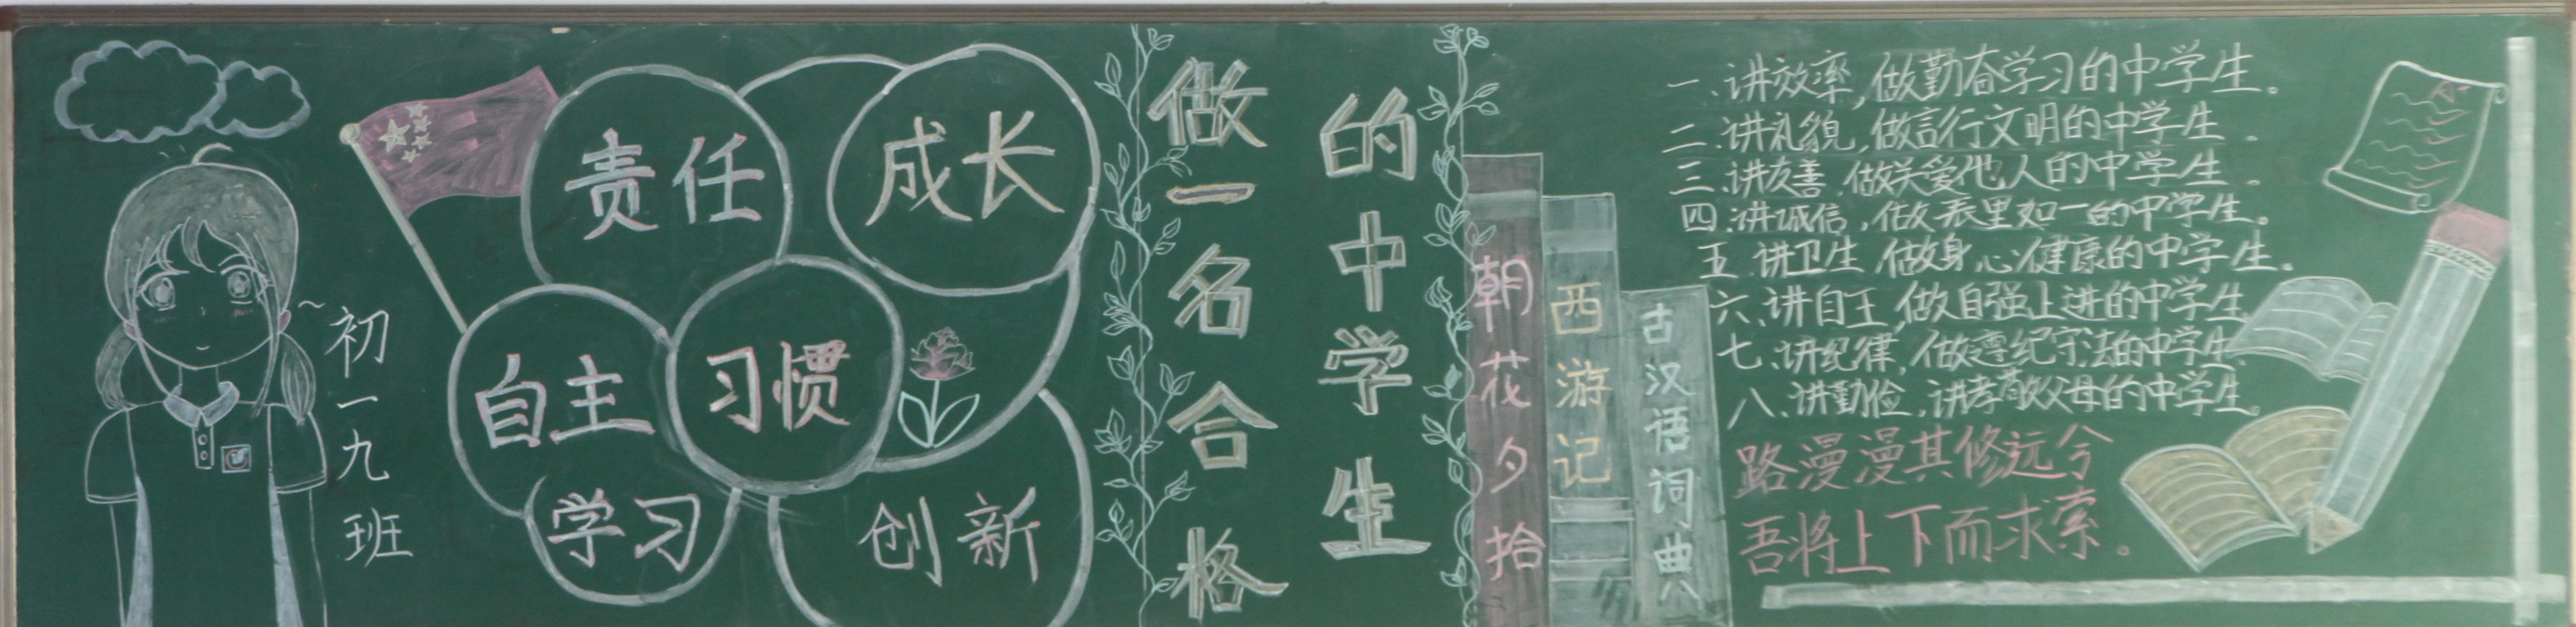 初一九班
责任
成长
自主
习惯
学习
创新
做一名合格
的中学生
朝花夕拾
西游记
古汉语词典
一.讲效率,做勤奋学习的中学生。
二.讲礼貌,做言行文明的中学生。
三.讲友善,做关爱他人的中学生。
四.讲诚信,做表里如一的中学生。
五.讲卫生,做身心健康的中学生。
六.讲自王,做自强上进的中学生
七.讲纪律,做遵纪守法的中学生
八.讲勤俭,讲孝敬父母的中学生。
路漫漫其修远兮
吾将上下而求索。
A+